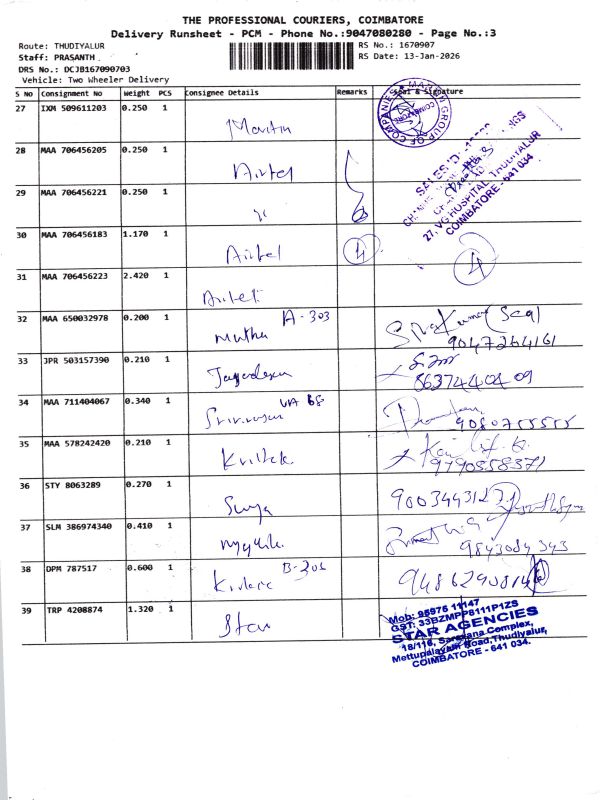 THE PROFESSIONAL COURIERS, COIMBATORE
Delivery Runsheet - PCM - Phone No.:9047080280 - Page No.:3
Route: THUDIYALUR
RS No.: 1670907
Staff: PRASANTH
RS Date: 13-Jan-2026
DRS No.: DCJB167090703
Vehicle: Two Wheeler Delivery
S NO Consignment No Weight PCS Consignee Details Remarks Seal & Signature
27 IXM 509611203 0.250 1 Martin
GROUP OF COMPANIES
COIMBATORE
28 MAA 706456205 0.250 1 Airtel
29 MAA 706456221 0.250 1
27, VG HOSPITAL, THUDIYALUR
COIMBATORE - 641 034
30 MAA 706456183 1.170 1 Airtel 4
4
31 MAA 706456223 2.420 1 Airtel
32 MAA 650032978 0.200 1 Muthu A-303 (Seal)
9047264161
33 JPR 503157390 0.210 1
8637440409
34 MAA 711404067 0.340 1
35 MAA 578242420 0.210 1
9790558371
36 STY 8063289 0.270 1 Surya
37 SLM 386974340 0.410 1
9843084343
38 DPM 787517 0.600 1
39 TRP 4208874 1.320 1 Star
Mob: 95975 11147
GST: 33BZMPP8111P1ZS
STAR AGENCIES
18/116, Saravana Complex,
Mettupalayam Road, Thudiyalur,
COIMBATORE - 641 034.